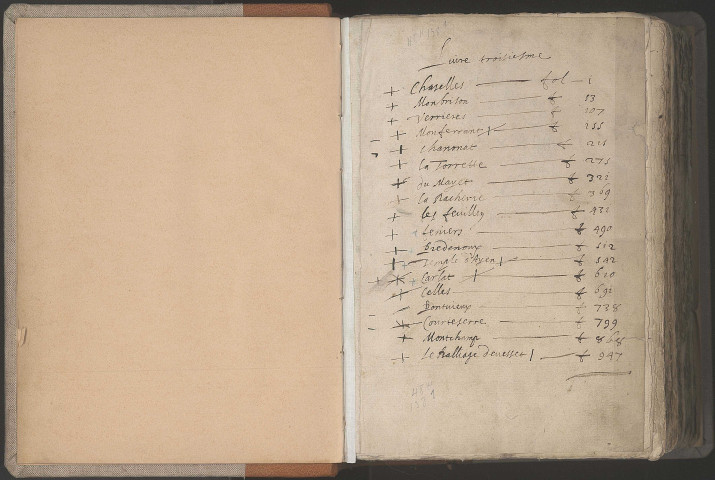 Livre troisiesme
Chaselles fol 1
Montbrison f 53
Verrieres f 107
Monferrant f 155
Chanonat f 215
La Torrette f 275
du Mayet f 321
La Racherie f 369
Les feuillez f 431
f 490
f 512
Temple d'Ayen f 542
Carlat f 610
Celles f 691
f 738
Courteserre f 799
Montchamp f 868
Le Balliage deuesset f 947